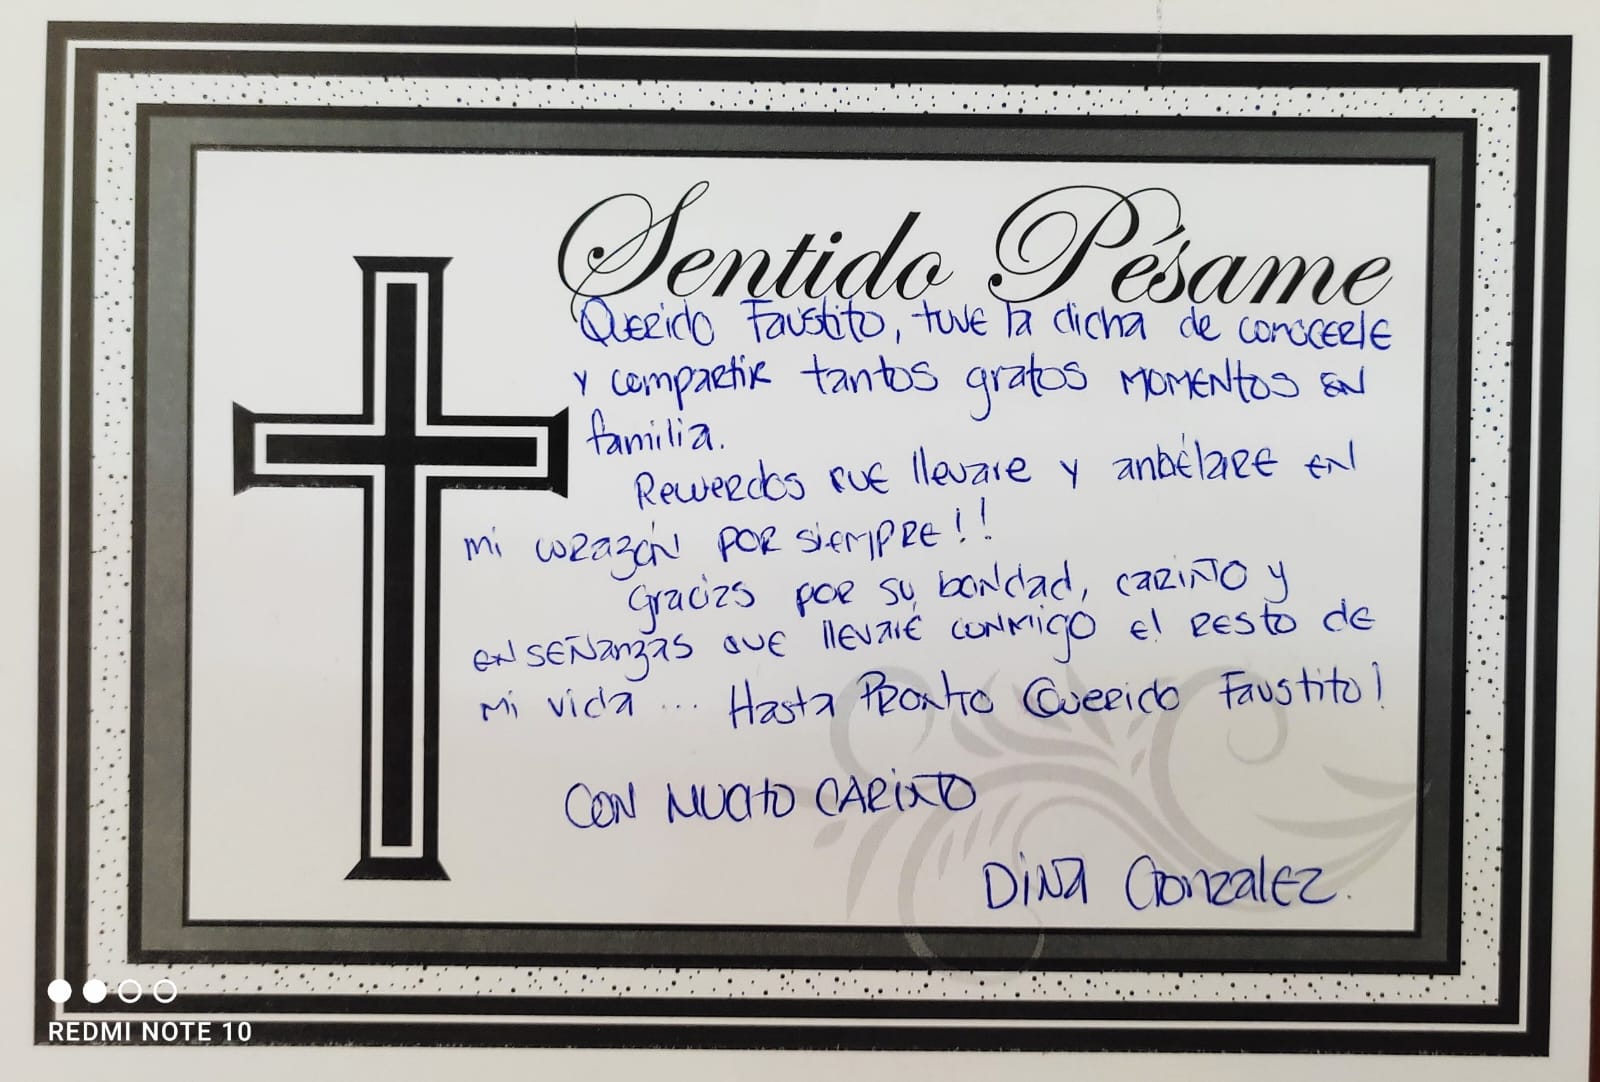 Sentido Pésame
Querido Faustito, tuve la dicha de conocerle
y compartir tantos gratos momentos en
familia.
Recuerdos que llevare y anhélare en
mi corazón por siempre!!
Gracias por su bondad, cariño y
enseñanzas que llevaré conmigo el resto de
mi vida... Hasta Pronto Querido Faustito!
CON MUCHO CARIÑO
Dina Gonzalez.
REDMI NOTE 10